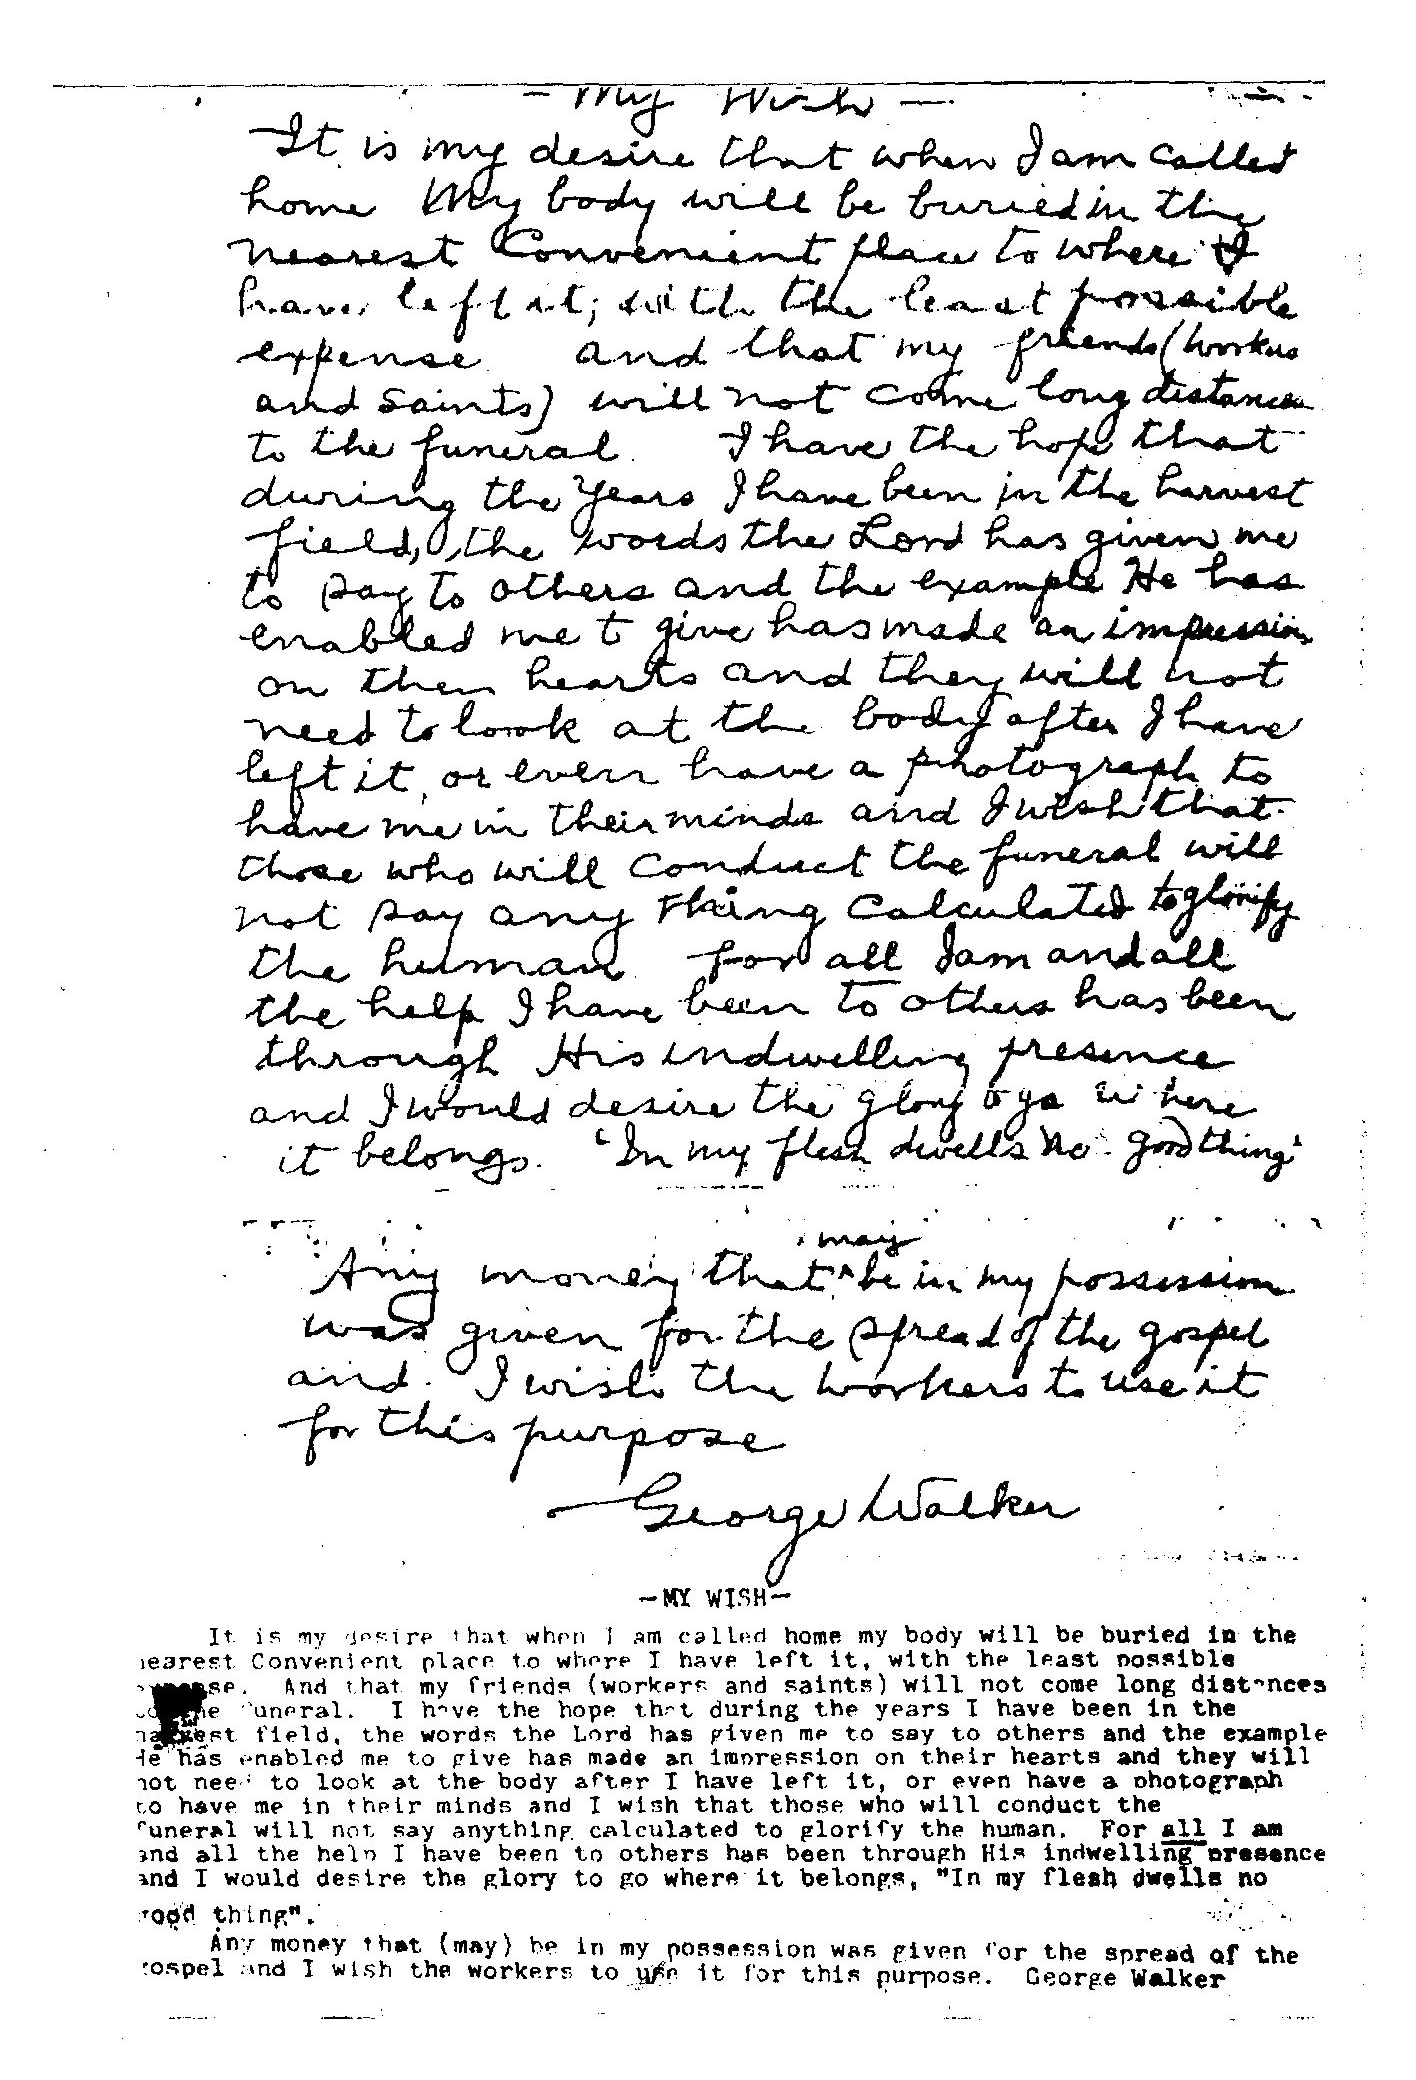 - My Wish -
It is my desire that when I am called
home My body will be buried in the
nearest Convenient place to where I
have left it; with the least possible
expense and that my friends (workers
and saints) will not come long distances
to the funeral. I have the hope that
during the Years I have been in the harvest
field, the words the Lord has given me
to say to others and the example He has
enabled me to give has made an impression
on their hearts and they will not
need to look at the body after I have
left it, or even have a photograph to
have me in their minds and I wish that
those who will conduct the funeral will
not say any thing calculated to glorify
the human for all I am and all
the help I have been to others has been
through His indwelling presence
and I would desire the glory to go where
it belongs. "In my flesh dwells no good thing"
Any money that ^may be in my possession
was given for the spread of the gospel
and I wish the workers to use it
for this purpose
George Walker
-MY WISH-
It is my desire that when I am called home my body will be buried in the
nearest Convenient place to where I have left it, with the least possible
expense. And that my friends (workers and saints) will not come long distances
to the funeral. I have the hope that during the years I have been in the
harvest field, the words the Lord has given me to say to others and the example
He has enabled me to give has made an impression on their hearts and they will
not need to look at the body after I have left it, or even have a photograph
to have me in their minds and I wish that those who will conduct the
funeral will not say anything calculated to glorify the human. For all I am
and all the help I have been to others has been through His indwelling presence
and I would desire the glory to go where it belongs, "In my flesh dwells no
good thing".
Any money that (may) be in my possession was given for the spread of the
gospel and I wish the workers to use it for this purpose. George Walker